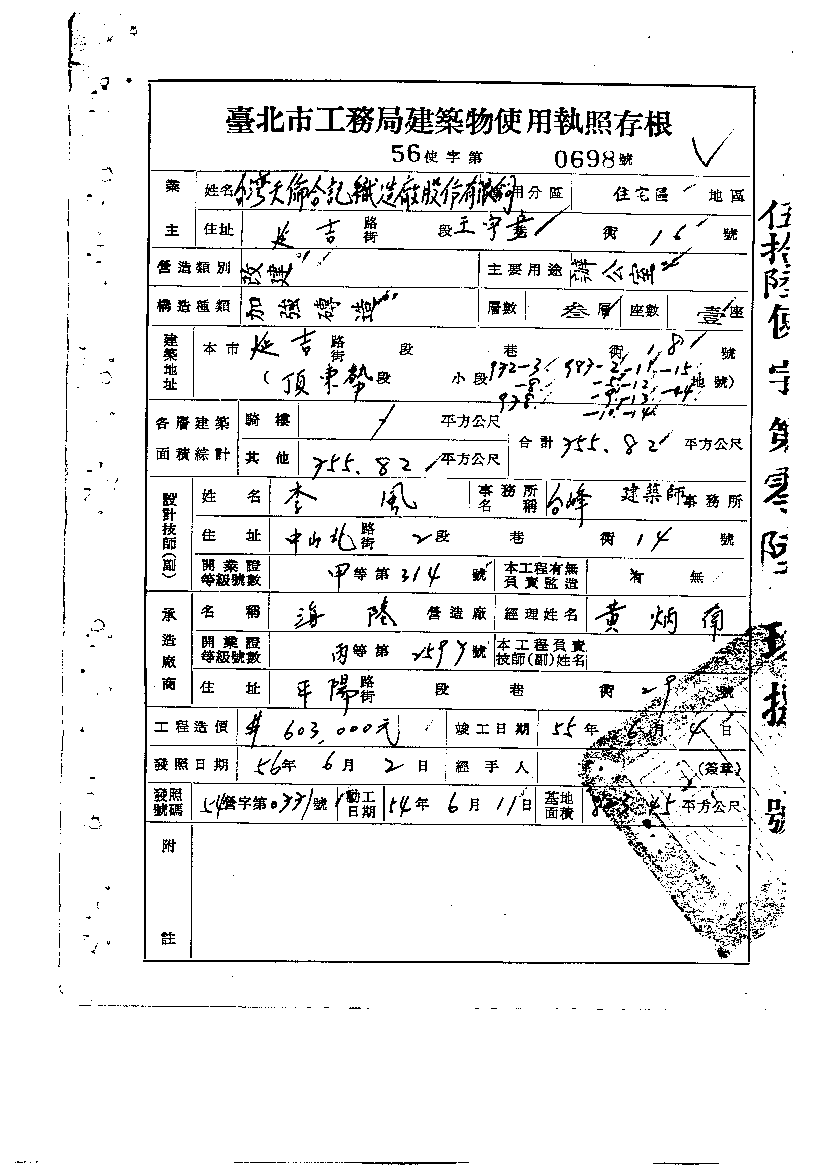 臺北市工務局建築物使用執照存根
56使字第 0698號
業主 姓名 台灣天倫合記織造廠股份有限公司 使用分區 住宅區 地區
住址 延吉 路街 段 巷 衖 16 號
營造類別 改建 主要用途 辦公室
構造種類 加強磚造 層數 叁層 座數 壹座
建築地址 本市 延吉 路街 段 巷 衖 18 號
(頂東勢段 小段 地號)
各層建築面積綜計 騎樓 / 平方公尺 合計 755.82 平方公尺
其他 755.82 平方公尺
設計技師(副) 姓名 李風 事務所名稱 台峰 建築師事務所
住址 中山北 路街 2段 巷 衖 14 號
開業證等級號數 甲等第314號 本工程有無負責監造 有 無
承造廠商 名稱 海陸 營造廠 經理姓名 黃炳南
開業證等級號數 丙等第2597號 本工程負責技師(副)姓名
住址 平陽 路街 段 巷 衖 29 號
工程造價 # 603,000元 竣工日期 55年6月4日
發照日期 56年6月2日 經手人 (簽章)
發照號碼 54營字第0331號 動工日期 54年6月11日 基地面積 平方公尺
附註
伍拾陸使字第零陸玖捌號